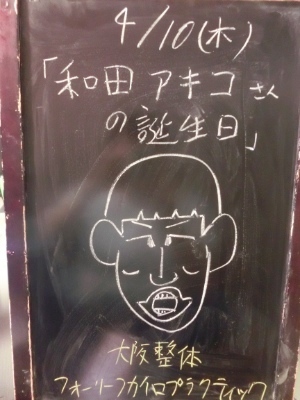 4/10(木)
「和田アキコさん
の誕生日」
大阪整体
フォーリーフカイロプラクティック